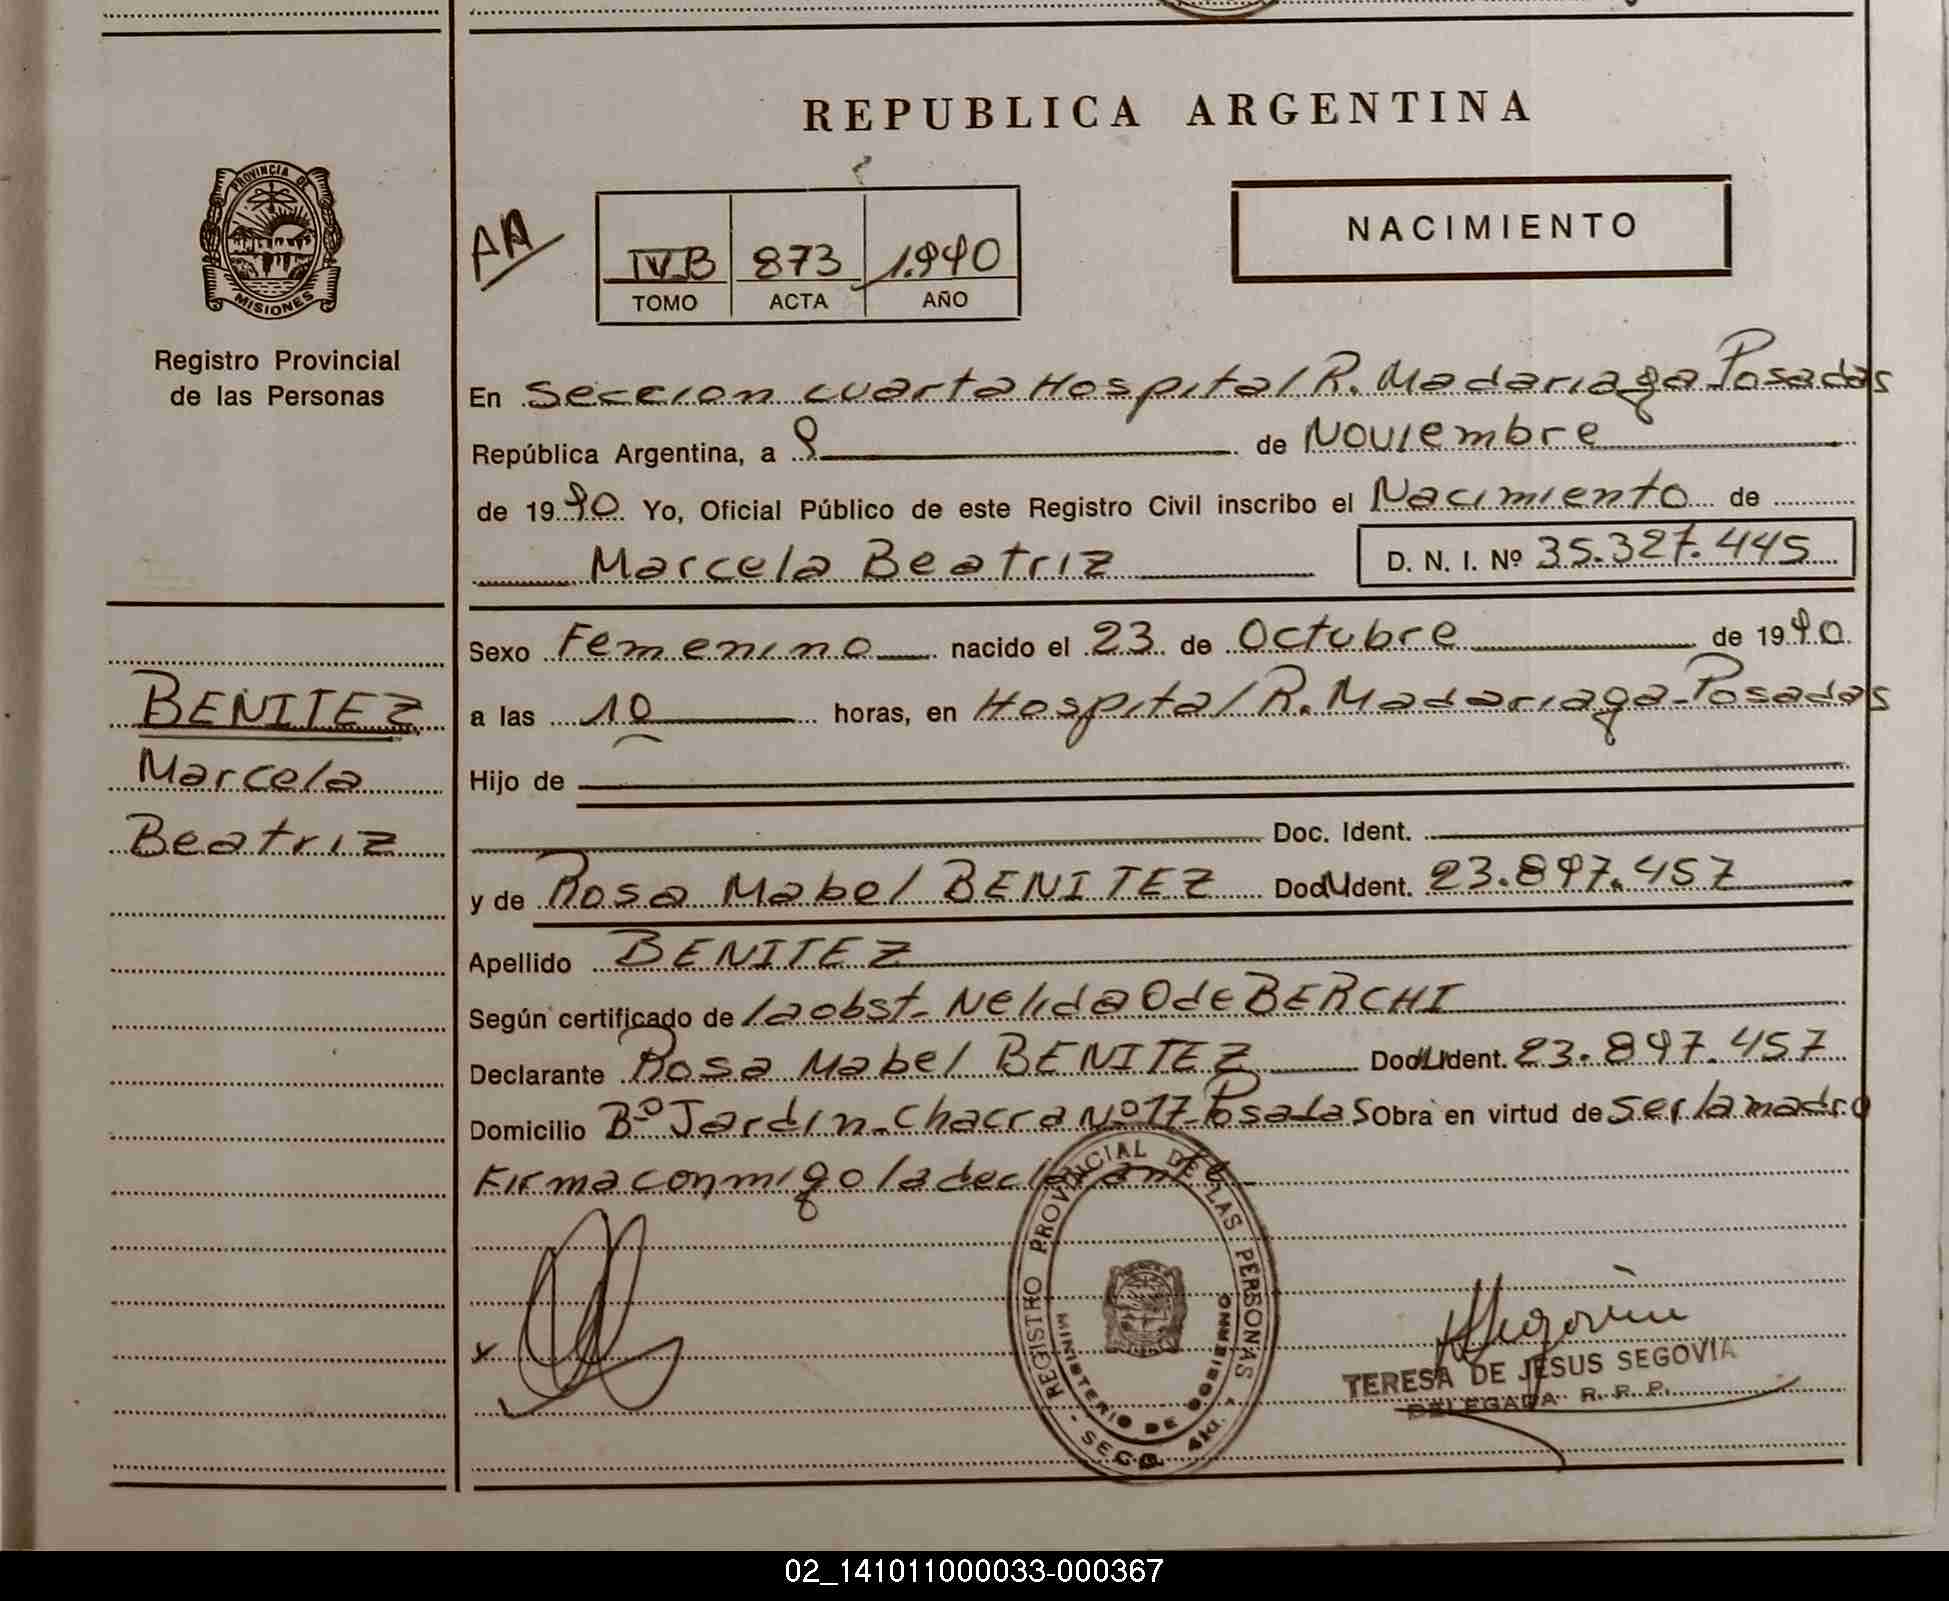 REPUBLICA ARGENTINA
PROVINCIA DE
MISIONES
Registro Provincial
de las Personas
AA
IVB 873 1.990
TOMO ACTA AÑO
NACIMIENTO
En seccion cuarta Hospital R. Madariaga-Posadas
República Argentina, a 9 de Noviembre
de 1990 Yo, Oficial Público de este Registro Civil inscribo el Nacimiento de
Marcela Beatriz D. N. I. Nº 35.327.445
Sexo Femenino nacido el 23 de Octubre de 1990
a las 10 horas, en Hospital R. Madariaga-Posadas
Hijo de
Doc. Ident.
y de Rosa Mabel BENITEZ Doc. Ident. 23.897.457
Apellido BENITEZ
Según certificado de la obst. Nelida O de BERCHI
Declarante Rosa Mabel BENITEZ Doc. Ident. 23.897.457
Domicilio Bº Jardin-Chacra Nº 17-Posadas Obra en virtud de ser la madre
Firma conmigo la declarante
BENITEZ
Marcela
Beatriz
REGISTRO PROVINCIAL DE LAS PERSONAS
MINISTERIO DE GOBIERNO
SECC. 4ta.
Segovia
TERESA DE JESUS SEGOVIA
DELEGADA R. P. P.
02_141011000033-000367